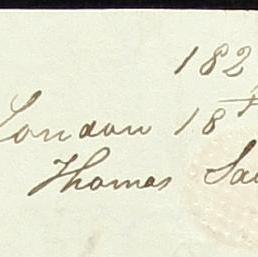 182
London 18
Thomas Sa